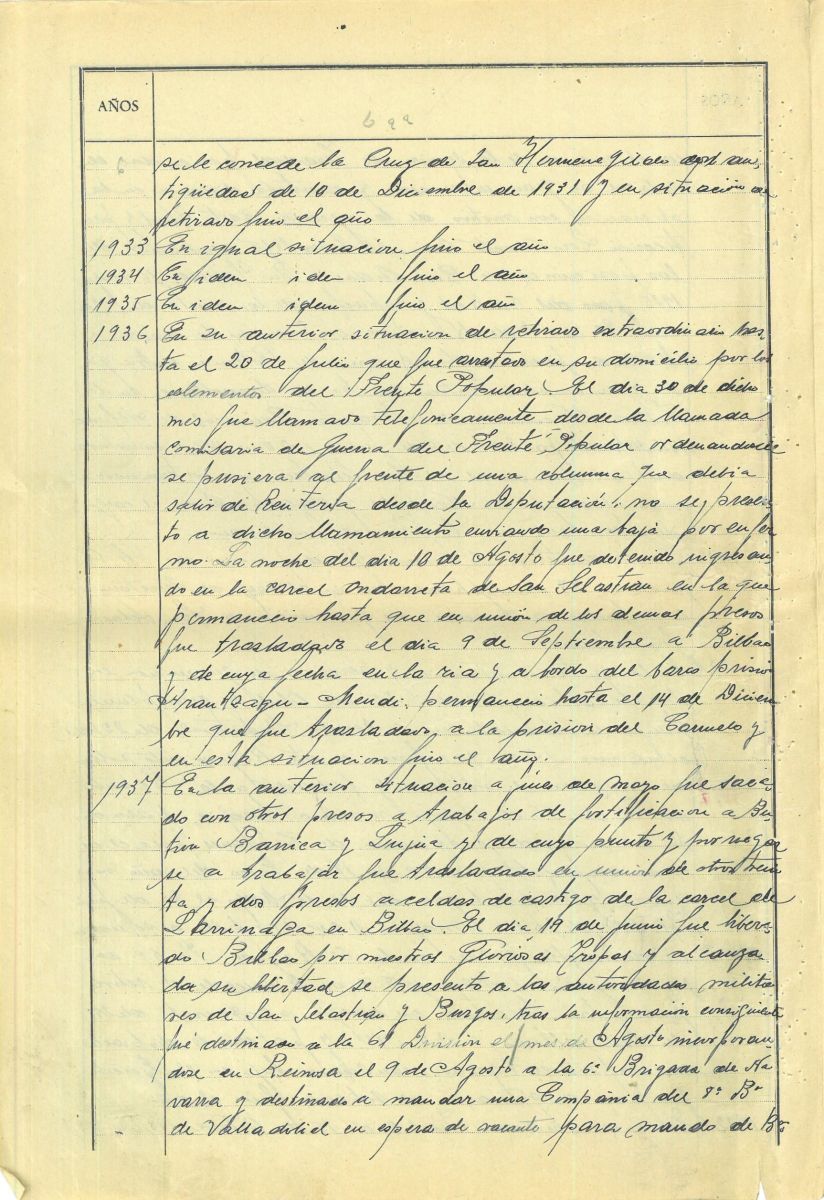 AÑOS
se le concede la Cruz de San Hermenegildo con an-
tigüedad de 10 de Diciembre de 1931 y en situación de
retirado fino el año
1933 En igual situacion fino el año
1934 En iden iden fino el año
1935 En iden idem fino el año
1936 En su anterior situacion de retirado extraordinario has-
ta el 20 de Julio que fue arrestado en su domicilio por los
elementos del Frente Popular. El dia 30 de dicho
mes fue llamado telefonicamente desde la llamada
Comisaria de Guerra del Frente Popular ordenandosele
se pusiera al frente de una columna que debia
salir de Renteria desde la Diputación; no se presen-
to a dicho llamamiento enviando una baja por enfer
mo. La noche del dia 10 de Agosto fue detenido ingresan-
do en la carcel Ondarreta de San Sebastian en la que
permanecio hasta que en union de los demas presos
fue trasladado el dia 9 de Septiembre a Bilbao
y de cuya fecha en la ria y a bordo del barco prision
Arantzazu-Mendi, permanecio hasta el 14 de Diciem-
bre que fue trasladado a la prision del Carmelo y
en esta situacion fino el año.
1937 En la anterior situacion a fines de mayo fue saca-
do con otros presos a trabajos de fortificacion a Bu-
tron Barrica y Lujua y de cuyo punto y por negar
se a trabajar fue trasladado en union de otros trein
ta y dos presos a celdas de castigo de la carcel de
Larrinaga en Bilbao. El dia 19 de Junio fue libera-
do Bilbao por nuestras Gloriosas Tropas y alcanza-
da su libertad se presento a las autoridades milita
res de San Sebastián y Burgos, tras la información consiguiente
fué destinado a la 61 División el mes de Agosto incorporan-
dose en Reinosa el 9 de Agosto a la 6ª Brigada de Na
varra y destinado a mandar una Compañia del 7º Bon
de Valladolid en espera de vacante para mando de Bon